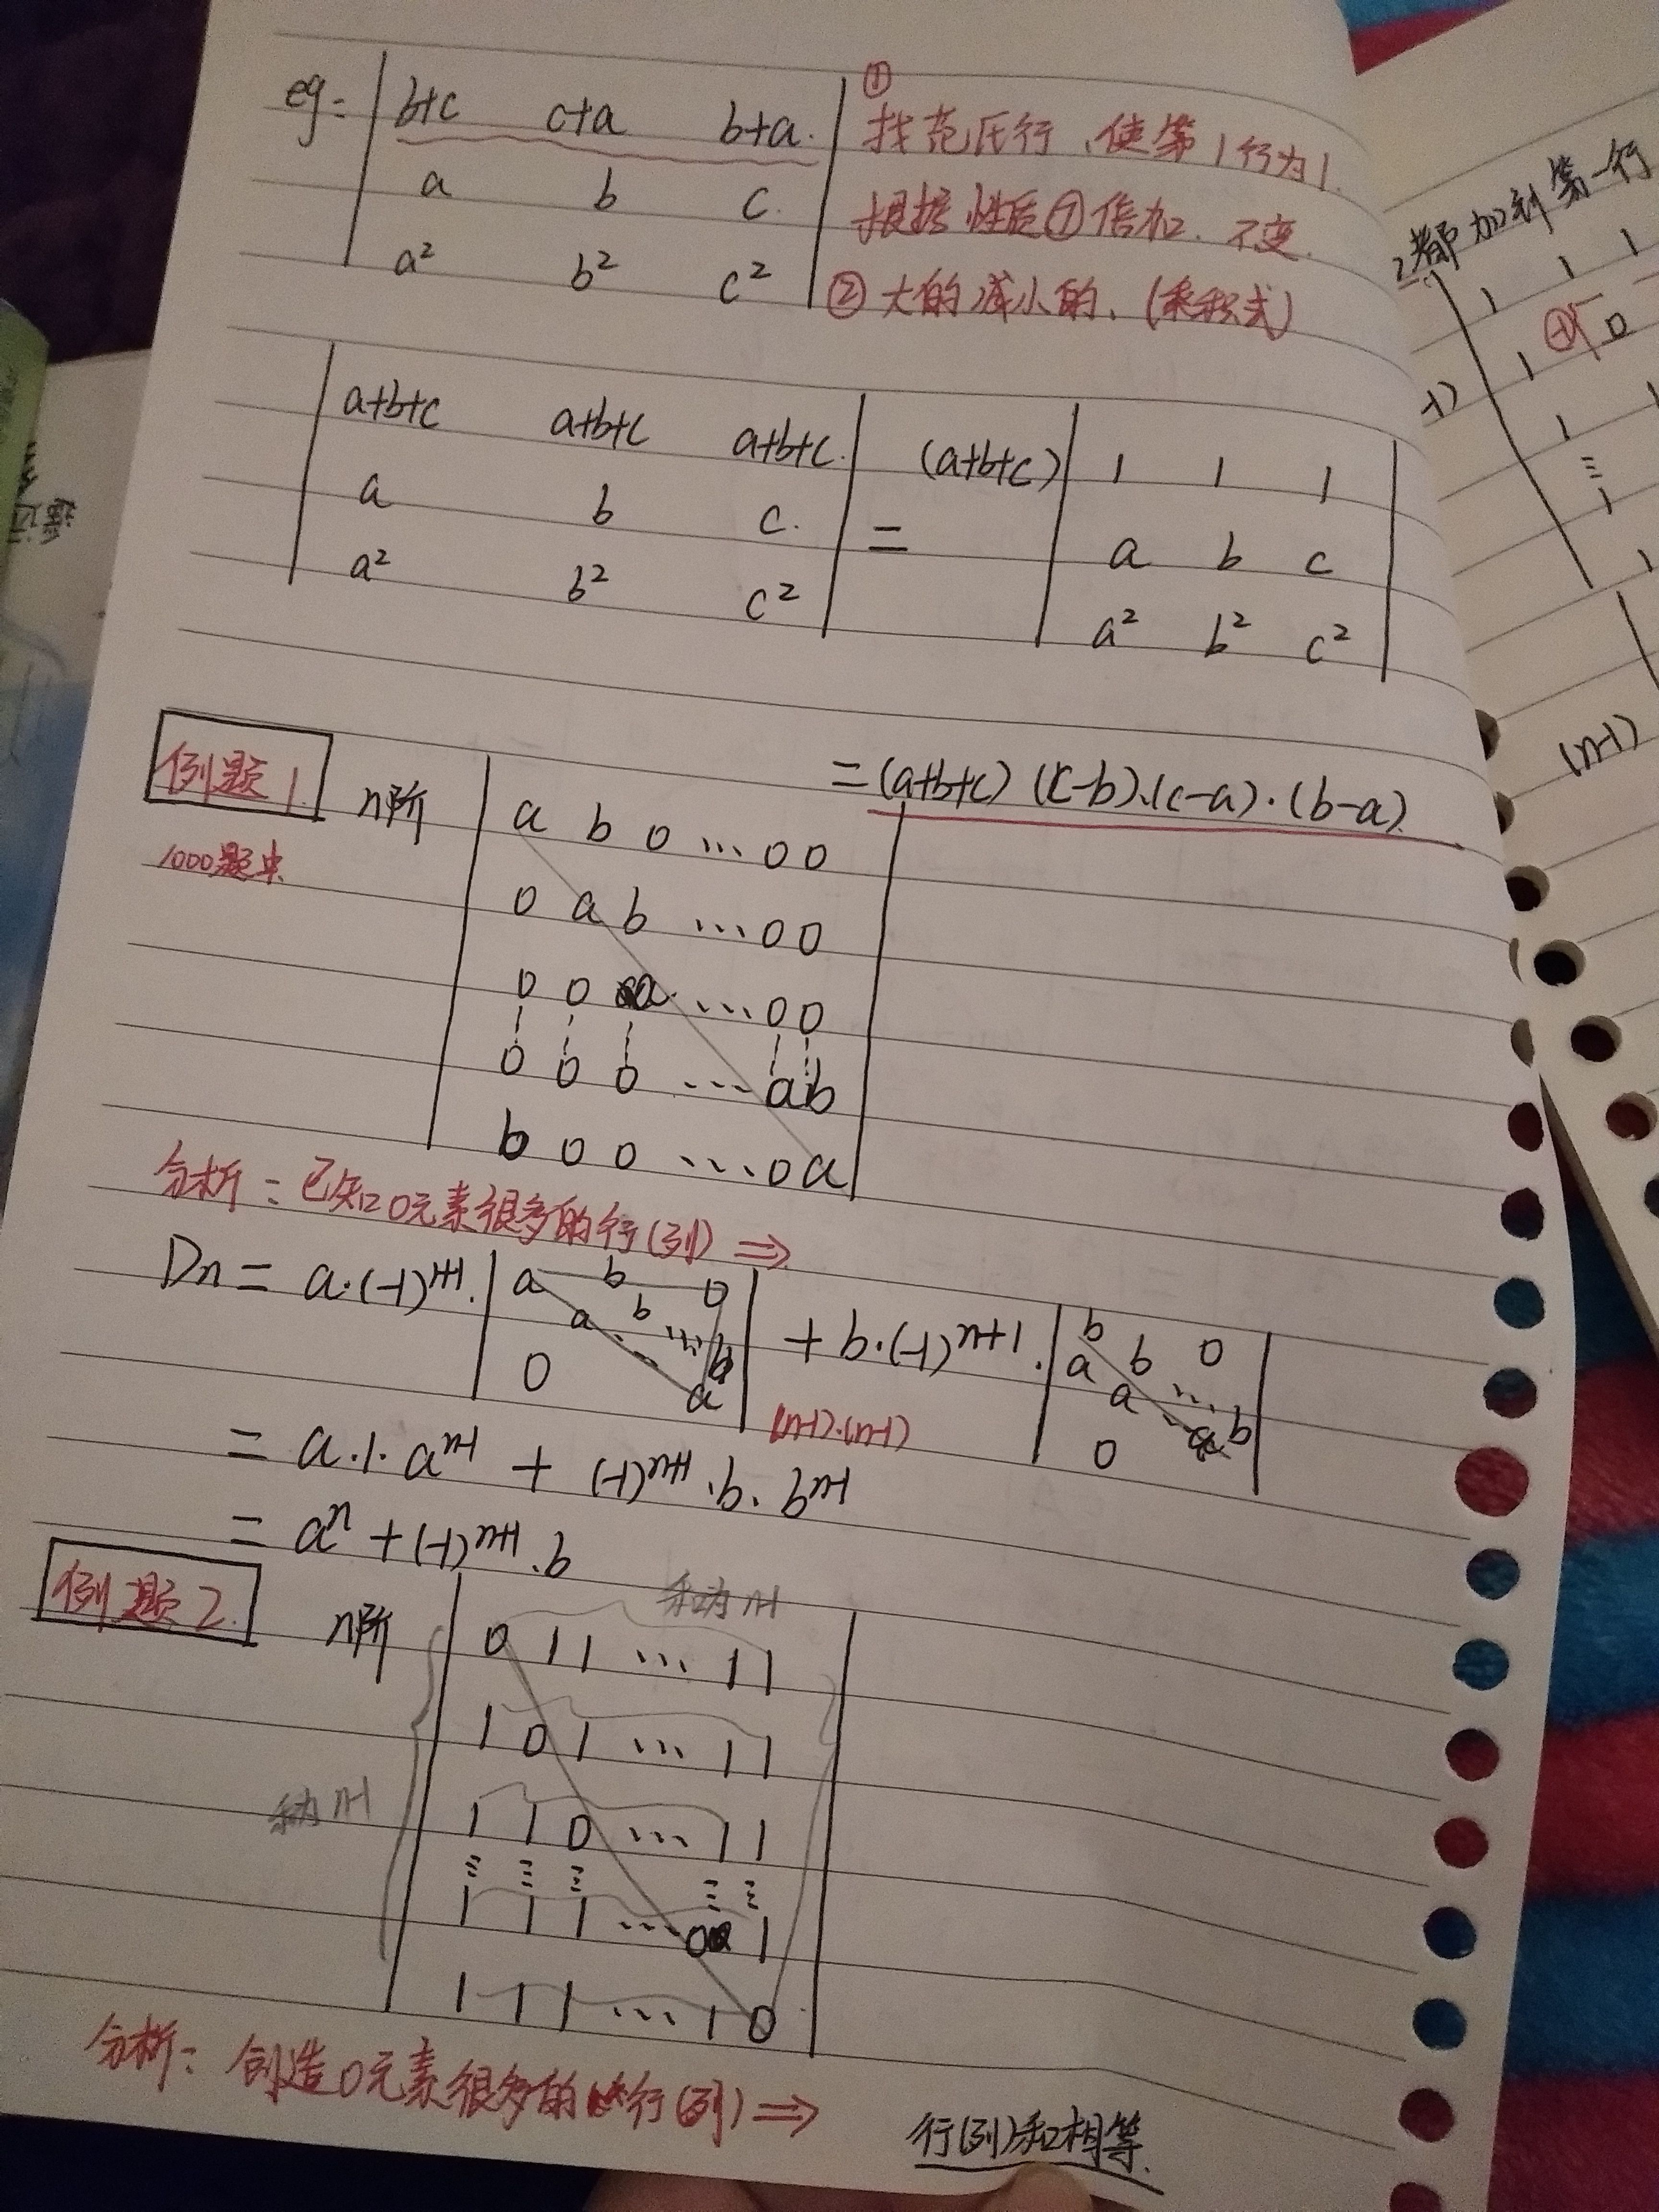 eg: | b+c c+a b+a |
| a b c |
| a² b² c² |
①
找范氏行、使第1行为1.
根据性质⑦倍加.不变.
② 大的减小的.(乘积式)
| a+b+c a+b+c a+b+c |
| a b c |
| a² b² c² |
= (a+b+c) | 1 1 1 |
| a b c |
| a² b² c² |
= (a+b+c) (c-b)·(c-a)·(b-a).
例题1.
1000题中
n阶 | a b 0 … 0 0 |
| 0 a b … 0 0 |
| 0 0 a … 0 0 |
| 0 0 0 … a b |
| b 0 0 … 0 a |
分析:已知0元素很多的行(列) ⇒
Dn = a·(-1)¹⁺¹· | a b 0 |
| a b … b |
| 0 a |
(n-1)·(n-1)
+ b·(-1)ⁿ⁺¹· | b 0 |
| a b |
| a … |
| 0 a b |
= a·1·aⁿ⁻¹ + (-1)ⁿ⁺¹·b·bⁿ⁻¹
= aⁿ + (-1)ⁿ⁺¹·b
例题2.
n阶
和为n-1
| 0 1 1 … 1 1 |
| 1 0 1 … 1 1 |
| 1 1 0 … 1 1 |
| 1 1 1 … 0 1 |
| 1 1 1 … 1 0 |
和为n-1
分析:创造0元素很多的行(列) ⇒
行(列)和相等.
都加到第一行
1 1 1
1 0
1
1
(n-1)